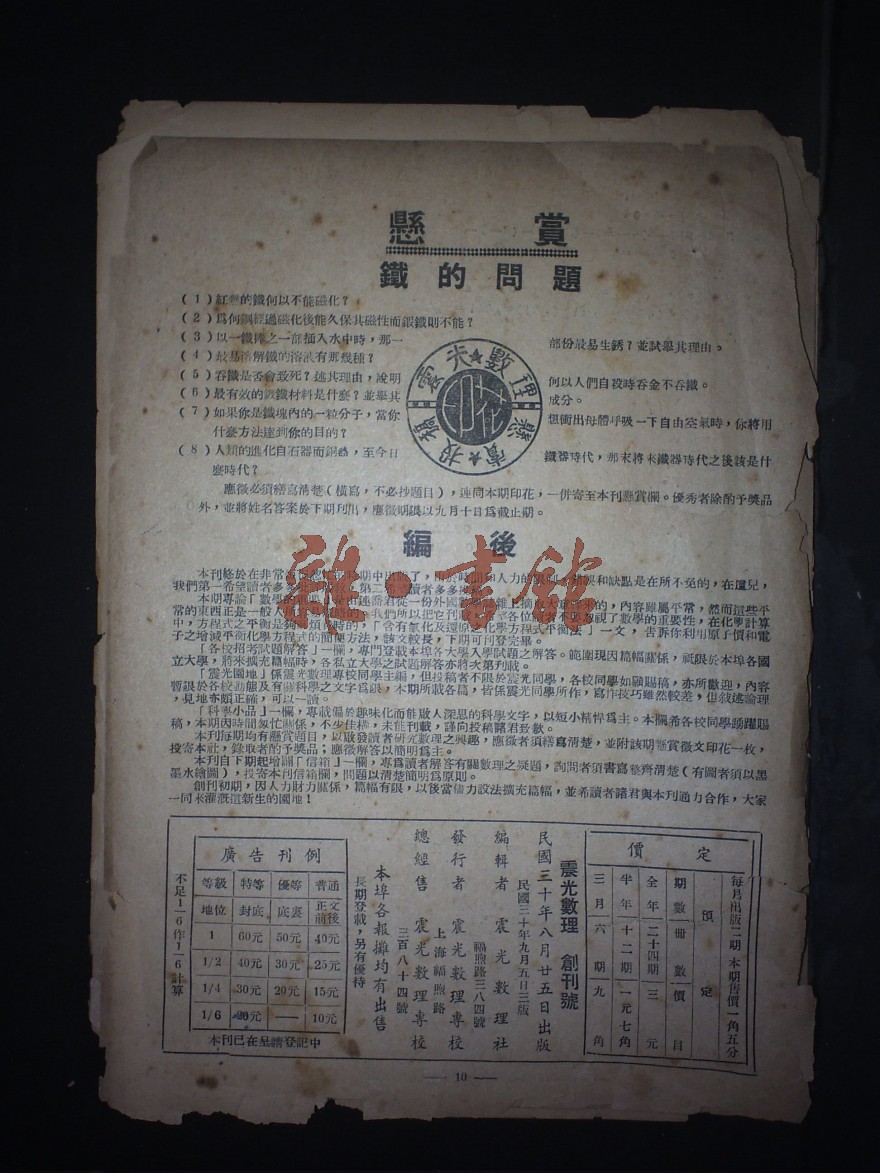 懸賞
鐵的問題
(1)紅熱的鐵何以不能磁化?
(2)爲何鋼經過磁化後能久保其磁性而鍛鐵則不能?
(3)以一鐵棒之一部插入水中時,那一部份最易生銹?並試舉其理由。
(4)最易溶解鐵的溶液有那幾種?
(5)吞鐵是否會致死?述其理由,說明何以人們自殺時吞金不吞鐵。
(6)最有效的鐵材料是什麽?並舉其成分。
(7)如果你是鐵塊內的一粒分子,當你想衝出母體呼吸一下自由空氣時,你將用
什麽方法達到你的目的?
(8)人類的進化自石器而銅器,至今日鐵器時代,那末將來鐵器時代之後該是什
麽時代?
震光★數理
懸賞★投稿
印花
應徵必須繕寫清楚(橫寫,不必抄題目),連同本期印花,一併寄至本刊懸賞欄。優秀者除酌予獎品
外,並將姓名答案於下期刊出,應徵期限以九月十日爲截止期。
編後
雜·書館
本刊終於在非常中出版了,由於時間和人力的限制,錯誤和缺點是在所不免的,在這兒,
我們第一希望讀者多多
本期專論「數學的重要」是由連喬君從一份外國雜上摘取大意來的,內容雖屬平常,然而這些平
常的東西正是一般人所我們所以把它刊各位讀者不要忽視了數學的重要性,在化學計算
中,方程式之平衡是夠麻煩的,「含有氧化及還原之化學方程式平衡法」一文,告訴你利用原子價和電
子之增減平衡化學方程式的簡便方法,該文較長,下期可刊登完畢。
「各校招考試題解答」一欄,專門登載本埠各大學入學試題之解答。範圍現因篇幅關係,祇限於本埠各國
立大學,將來擴充篇幅時,各私立大學之試題解答亦將次第刊載。
「震光園地」係震光數理專校同學主編,但投稿者不限於震光同學,各校同學如願賜稿,亦所歡迎,內容
暫限於各校動態及有關科學之文字爲限,本期所載各篇,皆係震光同學所作,寫作技巧雖然較差,但敘述論理
,見地亦頗正確,可以一讀。
「科學小品」一欄,專載偏於趣味化而能啟人深思的科學文字,以短小精悍爲主。本欄希各校同學踴躍賜
稿,本期因時間匆忙關係,不少佳構,未能刊載,謹向投稿諸君致歉。
本刊每期均有懸賞題目,以啟發讀者研究數理之興趣,應徵者須繕寫清楚,並附該期懸賞徵文印花一枚,
投寄本社,錄取者酌予獎品;應徵解答以簡明爲主。
本刊自下期起增闢「信箱」一欄,專爲讀者解答有關數理之疑題,詢問者須書寫整齊清楚(有圖者須以黑
墨水繪圖),投寄本刊信箱欄,問題以清楚簡明爲原則。
創刊初期,因人力財力關係,篇幅有限,以後當儘力設法擴充篇幅,並希讀者諸君與本刊通力合作,大家
一同來灌溉這新生的園地!
定價
每月出版二期 本期售價一角五分
預定
期數 冊數 價目
全年 二十四期 三元
半年 十二期 一元七角
三月 六期 九角
震光數理 創刊號
民國三十年八月廿五日出版
民國三十年九月五日三版
編輯者 震光數理社
福煦路三八四號
發行者 震光數理專校
上海福煦路
總經售 震光數理專校
三百八十四號
本埠各報攤均有出售
長期登載,另有優待
廣告刊例
等級 特等 優等 普通
地位 封底 底裏 正文前後
1 60元 50元 40元
1/2 40元 30元 25元
1/4 30元 20元 15元
1/6 20元 —— 10元
不足1—6作1—6計算
本刊已在呈請登記中
— 10 —